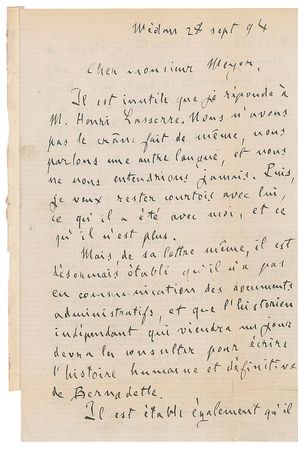 Médan 27 sept 94
Cher monsieur Meyer,
Il est inutile que je réponde à
M. Henri Lasserre. Nous n'avons
pas le crâne fait de même, nous
parlons une autre langue, et nous
ne nous entendrions jamais. Puis,
je veux rester courtois avec lui,
ce qu'il a été avec moi, et ce
qu'il n'est plus.
Mais, de sa lettre même, il est
désormais établi qu'il n'a pas
eu communication des documents
administratifs, et que l'historien
indépendant qui viendra un jour
devra les consulter pour écrire
l'histoire humaine et définitive
de Bernadette.
Il est établi également qu'il